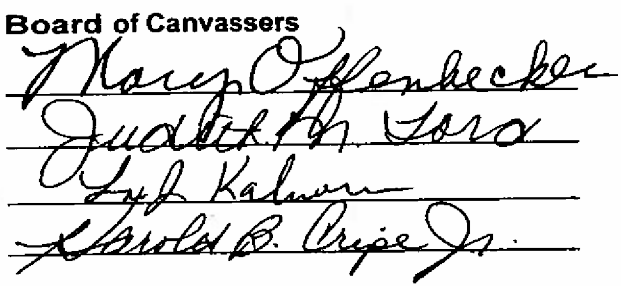 Board of Canvassers
Mary Offenhecker
Judith M Ford
Kalmon
Harold B. Cripe Jr.